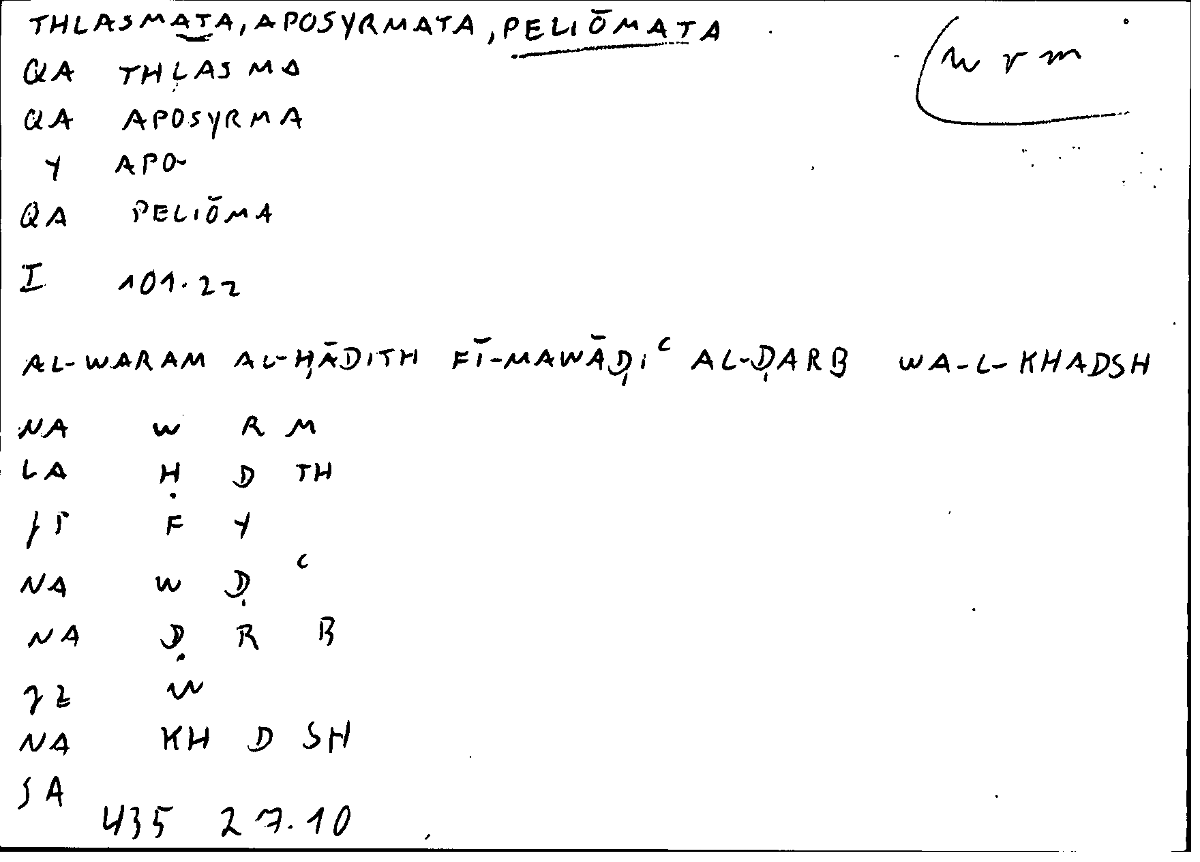 THLASMATA, APOSYRMATA, PELIŌMATA
w r m
QA THLASMA
QA APOSYRMA
Y APO
QA PELIŌMA
I 101.22
AL-WARAM AL-ḤĀDITH FĪ-MAWĀḌIᶜ AL-ḌARB WA-L-KHADSH
NA W R M
LA Ḥ D TH
F Y
NA W Ḍ ᶜ
NA Ḍ R B
W
NA KH D SH
SA
435 27.10